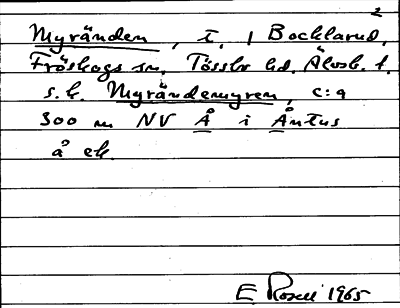 2
Myränden, t. 1 Bocklarud,
Fröskogs sn. Tössbo hd. Älvsb. l.
s.k. Myrändemyren, c:a
300 m NV Å i Åntus
å ek.
E Rosell 1965